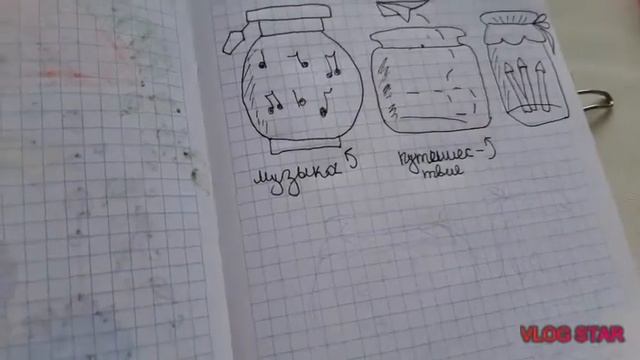 музыка
путешес-
твие
VLOG STAR